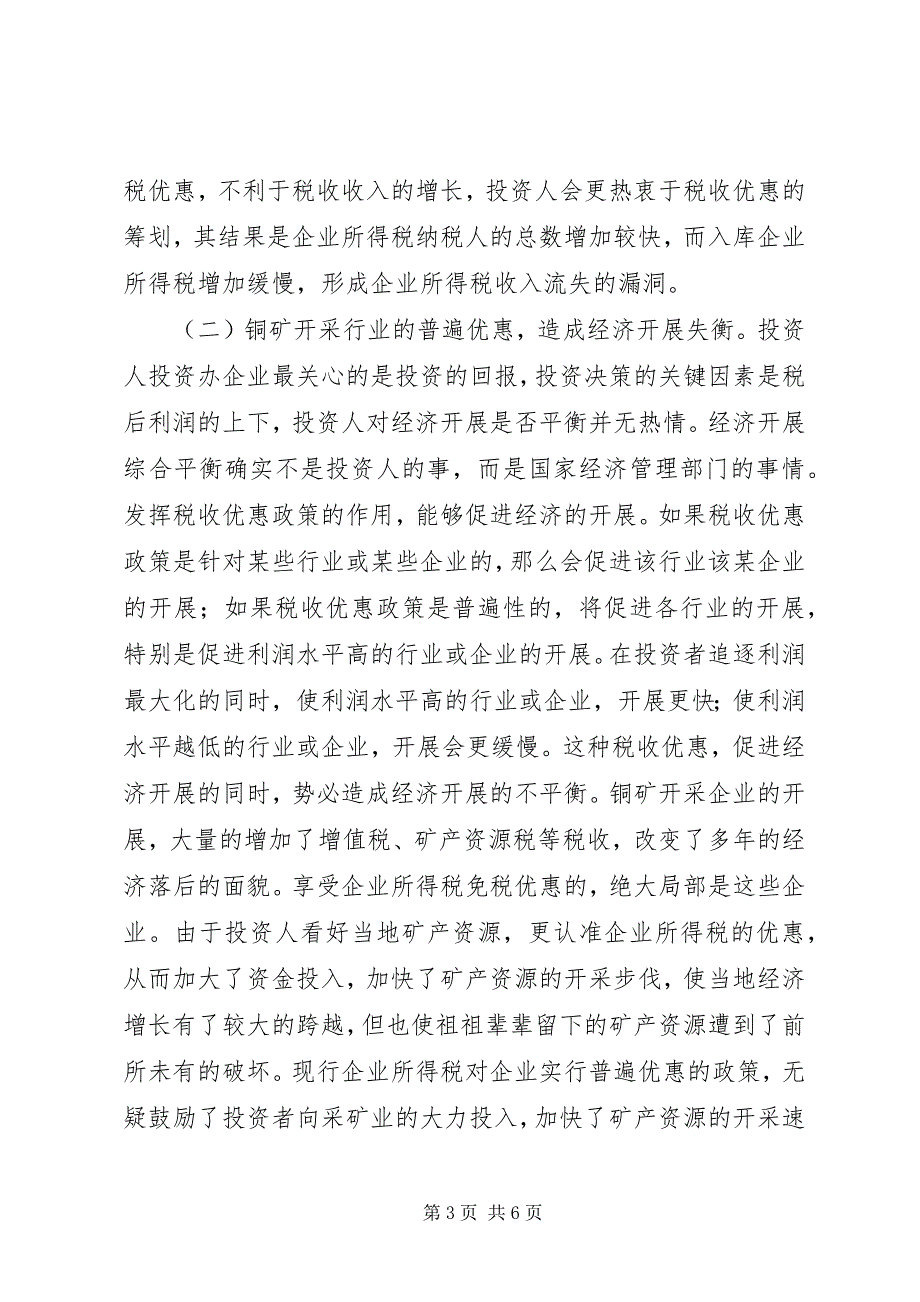 税优惠，不利于税收收入的增长，投资人会更热衷于税收优惠的
筹划，其结果是企业所得税纳税人的总数增加较快，而入库企业
所得税增加缓慢，形成企业所得税收入流失的漏洞。
（二）铜矿开采行业的普遍优惠，造成经济开展失衡。投资
人投资办企业最关心的是投资的回报，投资决策的关键因素是税
后利润的上下，投资人对经济开展是否平衡并无热情。经济开展
综合平衡确实不是投资人的事，而是国家经济管理部门的事情。
发挥税收优惠政策的作用，能够促进经济的开展。如果税收优惠
政策是针对某些行业或某些企业的，那么会促进该行业该某企业
的开展；如果税收优惠政策是普遍性的，将促进各行业的开展，
特别是促进利润水平高的行业或企业的开展。在投资者追逐利润
最大化的同时，使利润水平高的行业或企业，开展更快；使利润
水平越低的行业或企业，开展会更缓慢。这种税收优惠，促进经
济开展的同时，势必造成经济开展的不平衡。铜矿开采企业的开
展，大量的增加了增值税、矿产资源税等税收，改变了多年的经
济落后的面貌。享受企业所得税免税优惠的，绝大局部是这些企
业。由于投资人看好当地矿产资源，更认准企业所得税的优惠，
从而加大了资金投入，加快了矿产资源的开采步伐，使当地经济
增长有了较大的跨越，但也使祖祖辈辈留下的矿产资源遭到了前
所未有的破坏。现行企业所得税对企业实行普遍优惠的政策，无
疑鼓励了投资者向采矿业的大力投入，加快了矿产资源的开采速
第 3 页 共 6 页